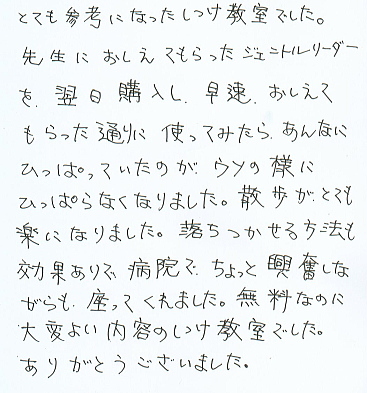 とても参考になったしつけ教室でした。
先生におしえてもらったジェントルリーダー
を、翌日購入し、早速、おしえて
もらった通りに使ってみたら、あんなに
ひっぱっていたのが、ウソの様に
ひっぱらなくなりました。散歩が、とても
楽になりました。落ちつかせる方法も
効果ありで、病院で、ちょっと興奮しな
がらも、座ってくれました。無料なのに
大変よい内容のしつけ教室でした。
ありがとうございました。